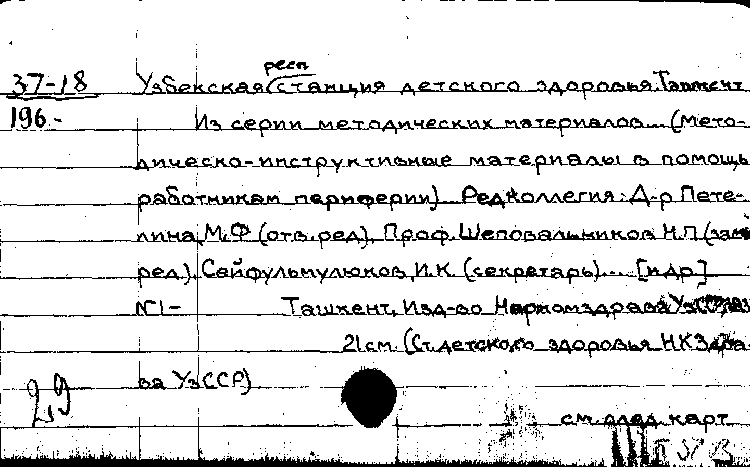 респ
37-18 Узбекская станция детского здоровья. Ташкент
196.- Из серии методических материалов... (Мето-
дическо-инструктивные материалы в помощь
работникам периферии). Редколлегия: Д-р Пете-
лина, М.Ф (отв.ред), Проф. Шеповальников Н.П (зам
ред), Сейфульмулюков, И.К. (секретарь)... [и др]
№1- Ташкент, Изд-во Наркомздрава УзССР,
21см. (Ст. детского здоровья НКЗдра
ва УзССР)
29
см. след. карт